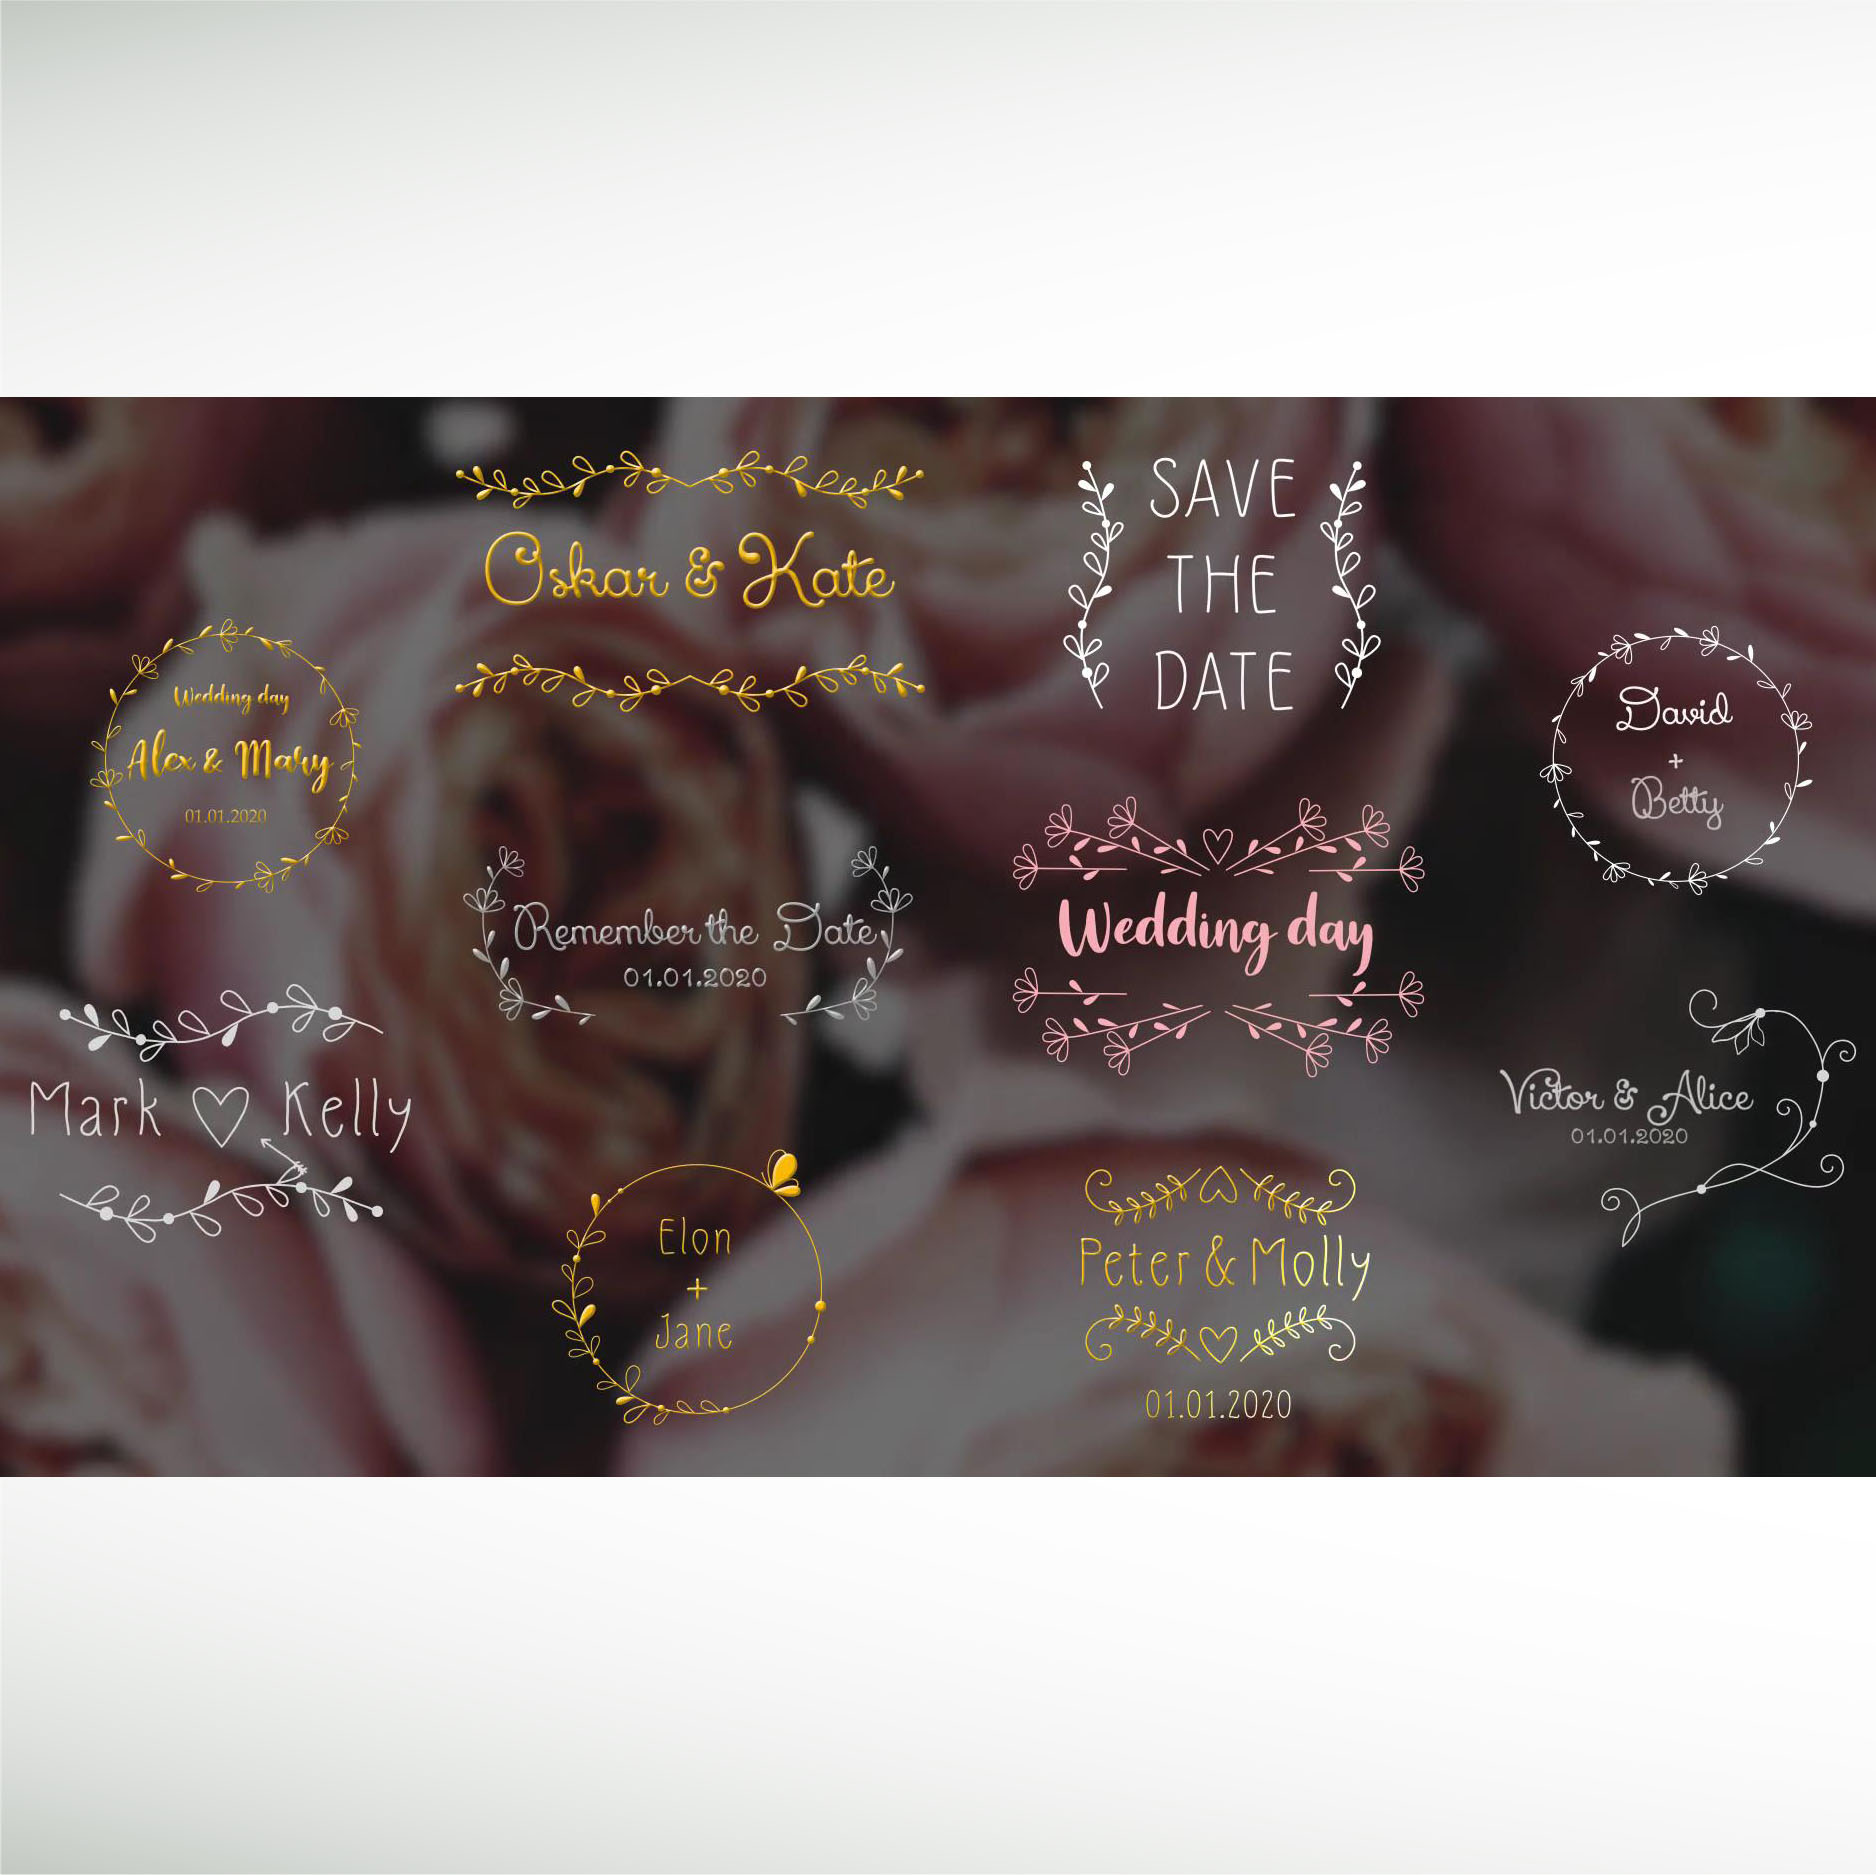 Oskar & Kate
SAVE
THE
DATE
Wedding day
Alex & Mary
01.01.2020
David
+
Betty
Remember the Date
01.01.2020
Wedding day
Mark Kelly
Victor & Alice
01.01.2020
Elon
+
Jane
Peter & Molly
01.01.2020